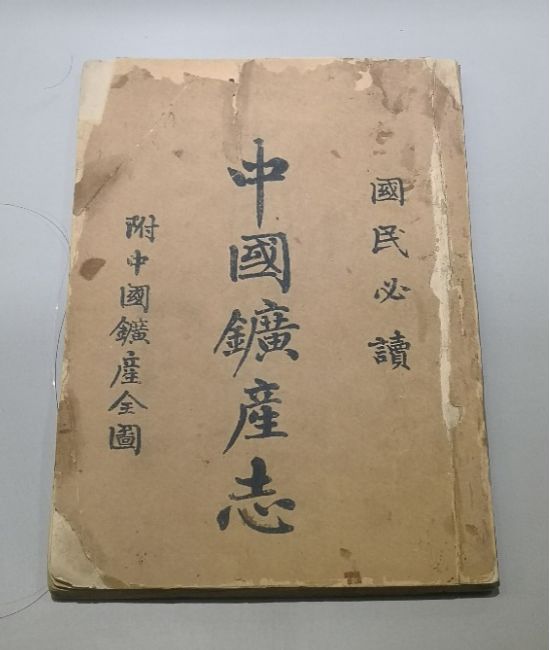 國民必讀
中國鑛產志
附中國鑛產全圖